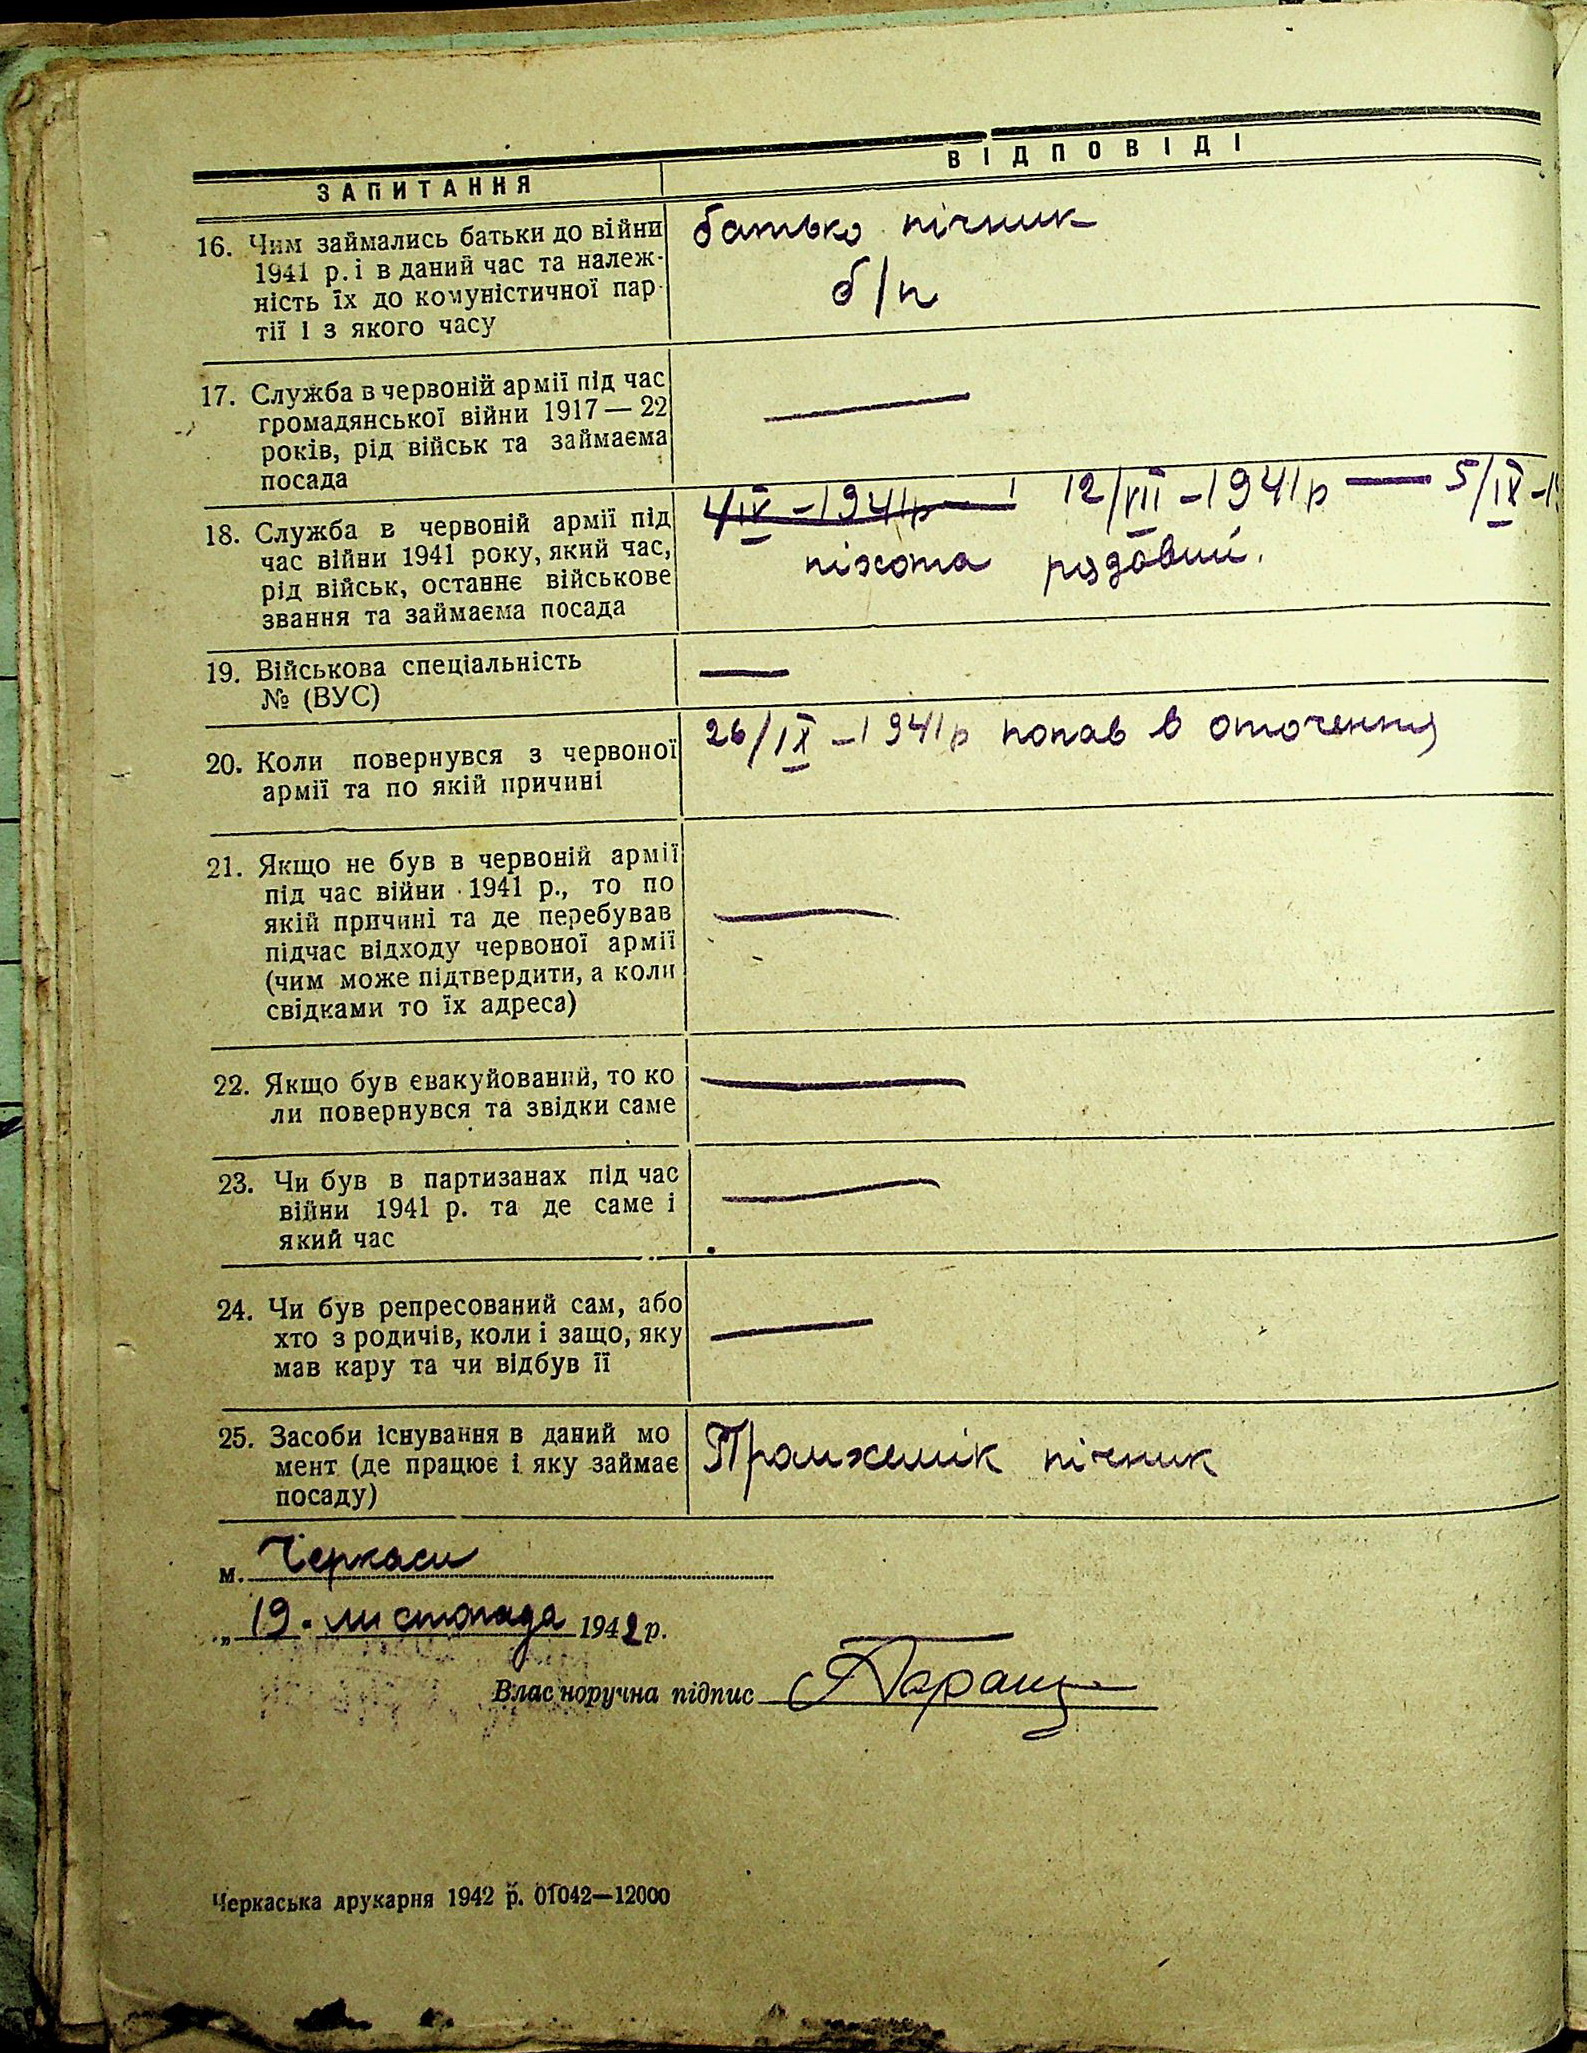 ЗАПИТАННЯ ВІДПОВІДІ
16. Чим займались батьки до війни
1941 р. і в даний час та належ-
ність їх до комуністичної пар-
тії і з якого часу
батько пічник
б/п
17. Служба в червоній армії під час
громадянської війни 1917—22
років, рід військ та займаєма
посада
—
18. Служба в червоній армії під
час війни 1941 року, який час,
рід військ, останнє військове
звання та займаєма посада
12/VII – 1941 р — 5/IX – 1
піхота рядовий.
19. Військова спеціальність
№ (ВУС)
—
20. Коли повернувся з червоної
армії та по якій причині
26/IX – 1941 р попав в оточення
21. Якщо не був в червоній армії
під час війни 1941 р., то по
якій причині та де перебував
підчас відходу червоної армії
(чим може підтвердити, а коли
свідками то їх адреса)
—
22. Якщо був євакуйований, то ко
ли повернувся та звідки саме
—
23. Чи був в партизанах під час
війни 1941 р. та де саме і
який час
—
24. Чи був репресований сам, або
хто з родичів, коли і защо, яку
мав кару та чи відбув її
—
25. Засоби існування в даний мо
мент (де працює і яку займає
посаду)
пічник
м. Черкаси
„19" листопада 1942 р.
Власноручна підпис
Черкаська друкарня 1942 р. 01042—12000